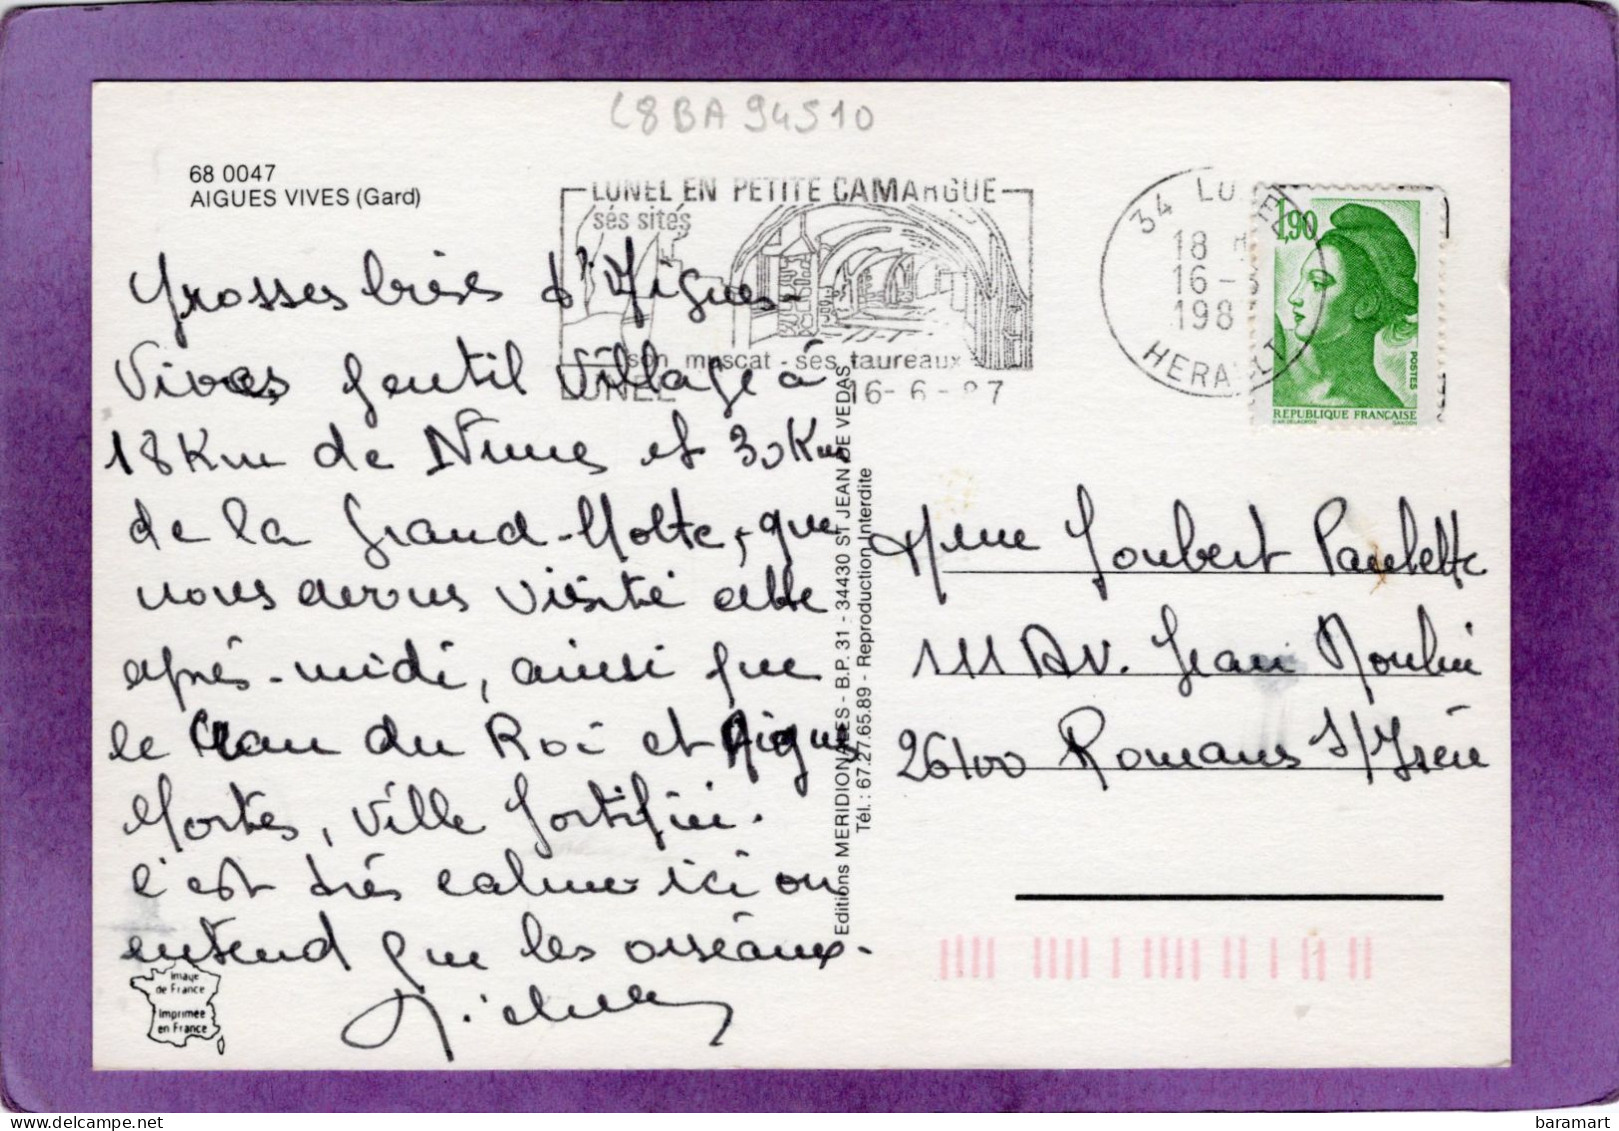 C8BA94510
68 0047
AIGUES VIVES (Gard)
LUNEL EN PETITE CAMARGUE
ses sités
son muscat - ses taureaux
LUNEL
16-6-87
34 LUNEL
18 H
16-6
1987
HERAULT
1,90
POSTES
REPUBLIQUE FRANÇAISE
Grosses bises d'Aigues-
Vives gentil village à
18 Km de Nîmes et 30 Km
de la Grand-Motte, que
nous avons visité cette
après-midi, ainsi que
le Grau du Roi et Aigues
Mortes, ville fortifiée.
C'est très calme ici on
entend que les oiseaux.
Mme Joubert Paulette
111 AV. Jean Moulin
26100 Romans s/Isère
Editions MERIDIONALES - B.P. 31 - 34430 ST JEAN DE VEDAS
Tél. : 67.27.65.89 - Reproduction Interdite
Image
de France
Imprimée
en France
baramart